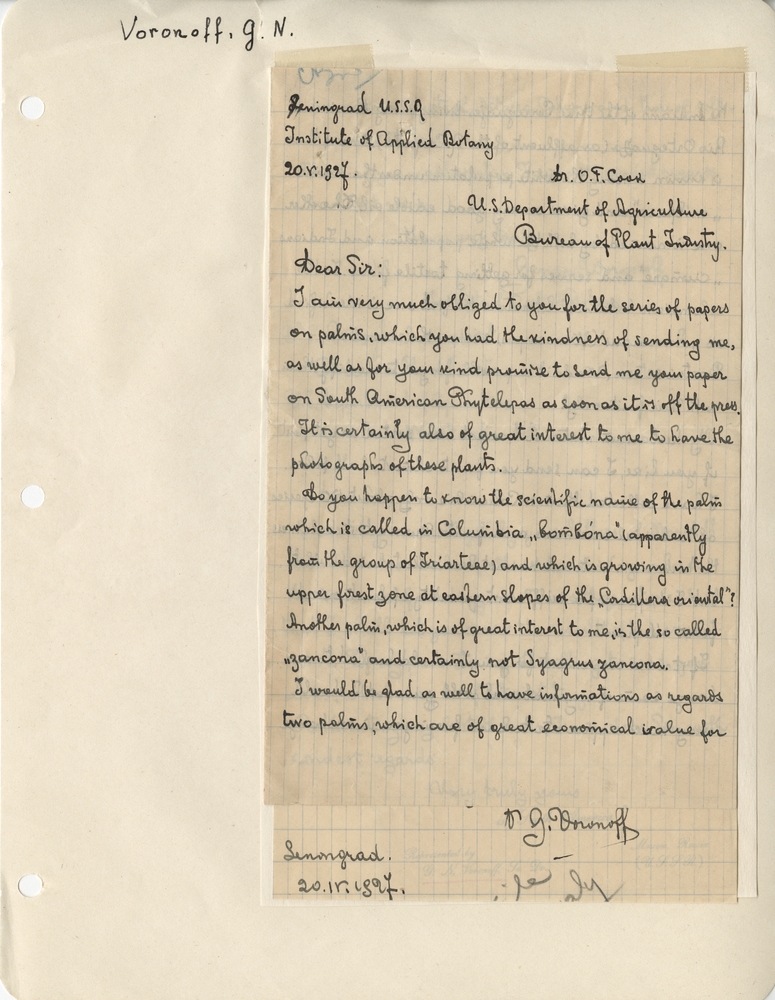 Voronoff, G. N.
Leningrad U.S.S.R
Institute of Applied Botany
20.V.1927.
Dr. O.F. Cook
U.S. Department of Agriculture
Bureau of Plant Industry.
Dear Sir:
I am very much obliged to you for the series of papers
on palms, which you had the kindness of sending me,
as well as for your kind promise to send me your paper
on South American Phytelepas as soon as it is off the press.
It is certainly also of great interest to me to have the
photographs of these plants.
Do you happen to know the scientific name of the palm
which is called in Columbia „bombóna" (apparently
from the group of Iriarteae) and which is growing in the
upper forest zone at eastern slopes of the „Cordillera oriental"?
Another palm, which is of great interest to me, is the so called
„zancona" and certainly not Syagrus zancona.
I would be glad as well to have informations as regards
two palms, which are of great economical value for
G. Voronoff
Leningrad.
20.IV.1927.